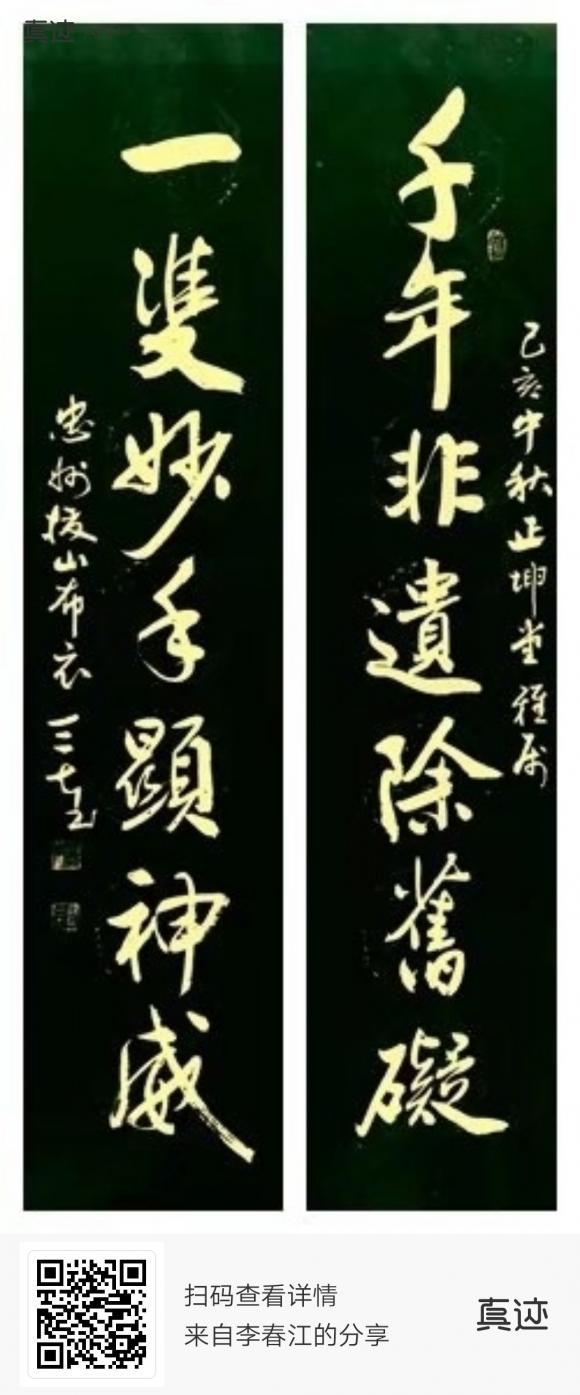 真迹
千年非遺除舊礙
己亥中秋正坤堂雅属
一雙妙手顯神威
忠州拔山布衣
扫码查看详情
来自李春江的分享
真迹